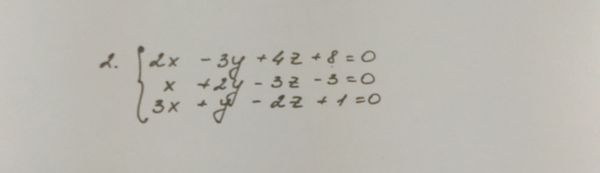 2. { 2x - 3y + 4z + 8 = 0
x + 2y - 3z - 3 = 0
3x + y - 2z + 1 = 0